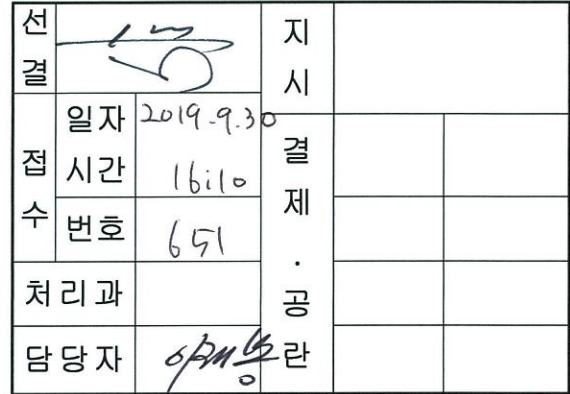 선결
지시
접수
일자 2019.9.30
시간 16:10
번호 651
결제·공란
처리과
담당자